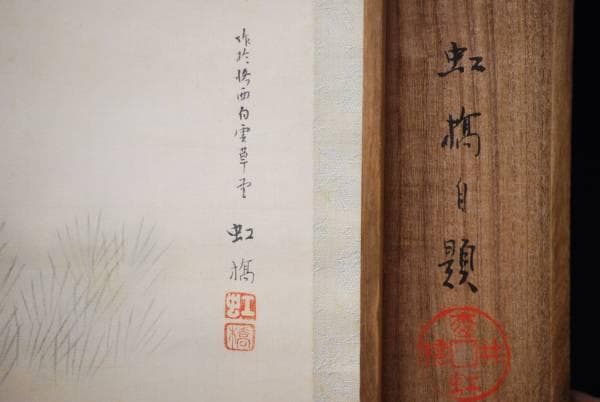 虹橋自題
作於洛西白雲草堂
虹橋
虹
橋